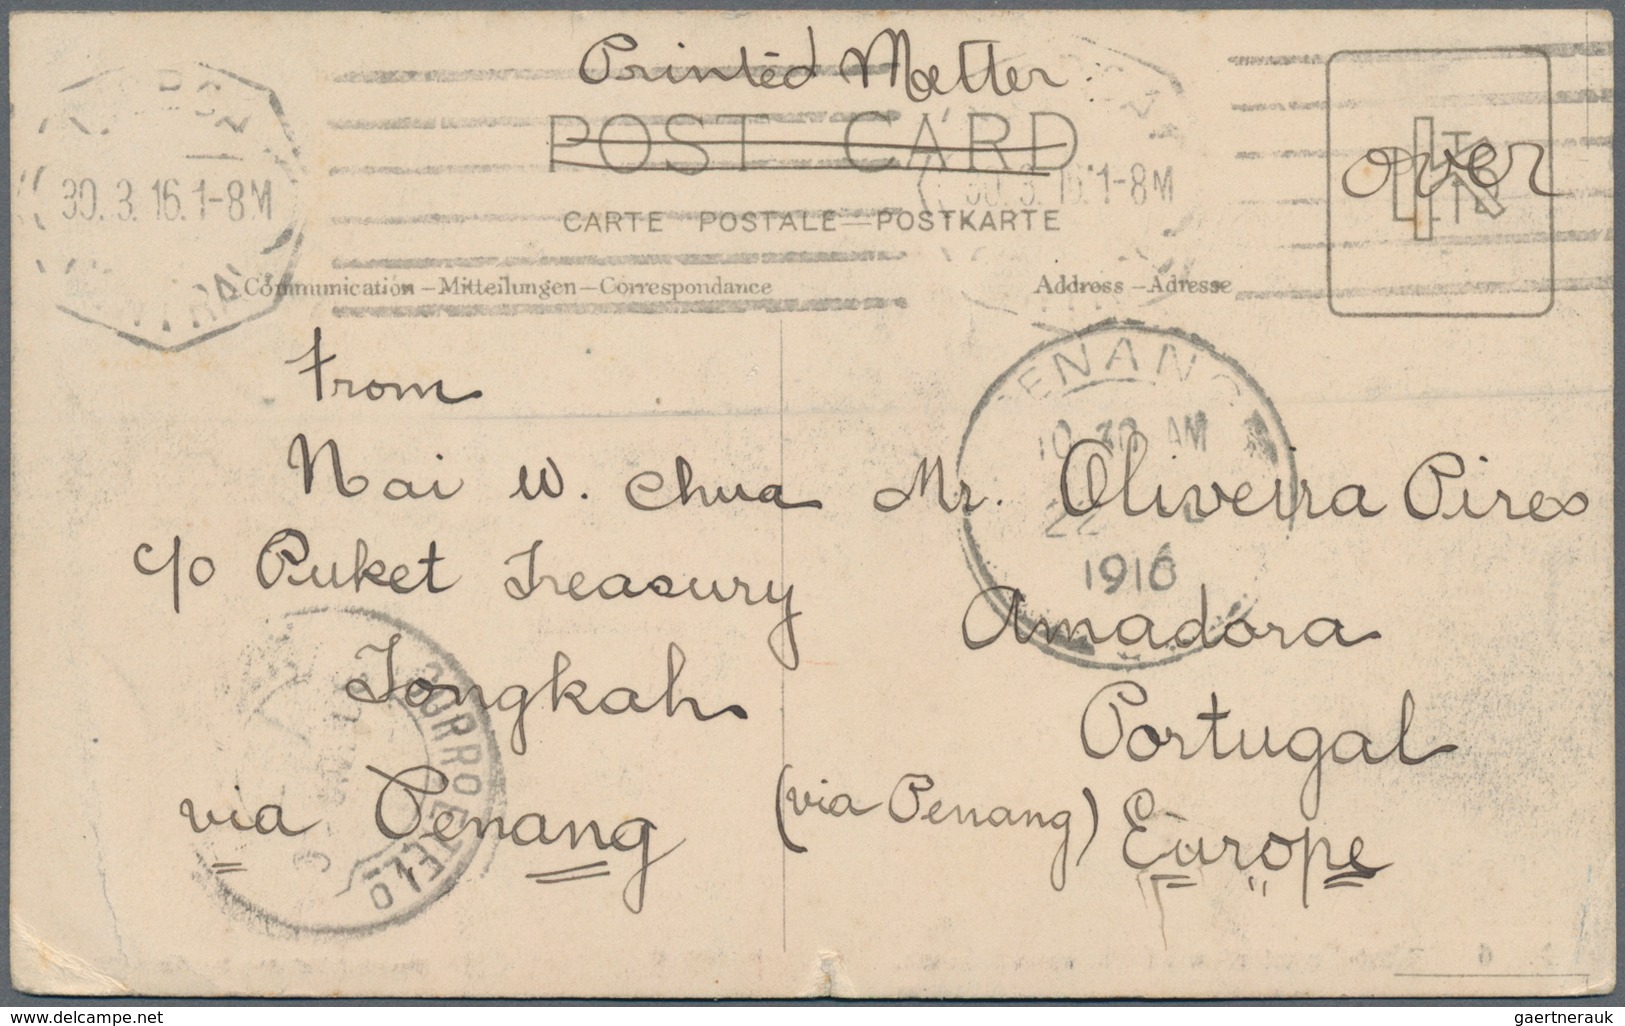 Printed Matter
POST CARD
over
30. 3. 16. 1-8M
30. 3. 16. 1-8M
CARTE POSTALE—POSTKARTE
Communication – Mitteilungen – Correspondance
Address – Adresse
From
ENANG
10 AM
22
1916
Nai W. Chua
c/o Puket Treasury
Tongkah
via Penang
Mr. Oliveira Pires
Amadora
Portugal
(via Penang)
Europe
CORREO E TEL
www.delcampe.net
gaertnerauk